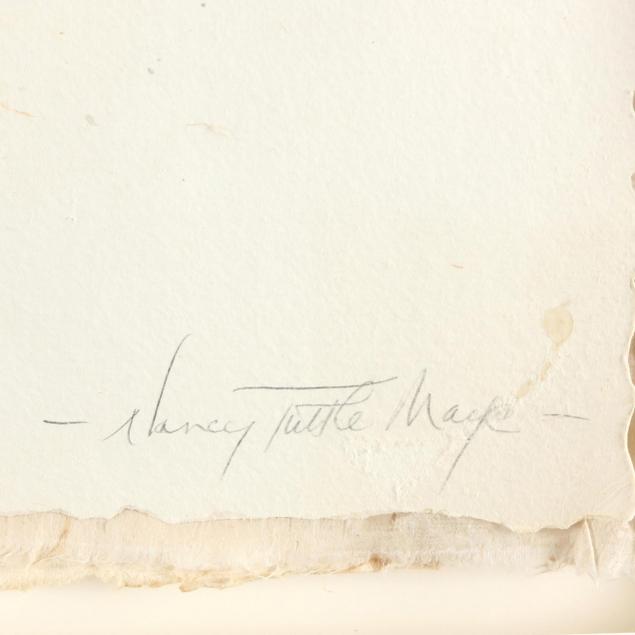 - Nancy Tuttle May -